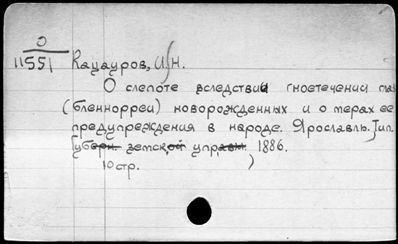 О
11551 Кацауров, И.Н.
О слепоте вследствий гноетечении глаз
(бленноррей) новорожденных и о мерах ее
предупреждения в народе. Ярославль. Тип.
Губерн. земской управы 1886.
10 стр. )